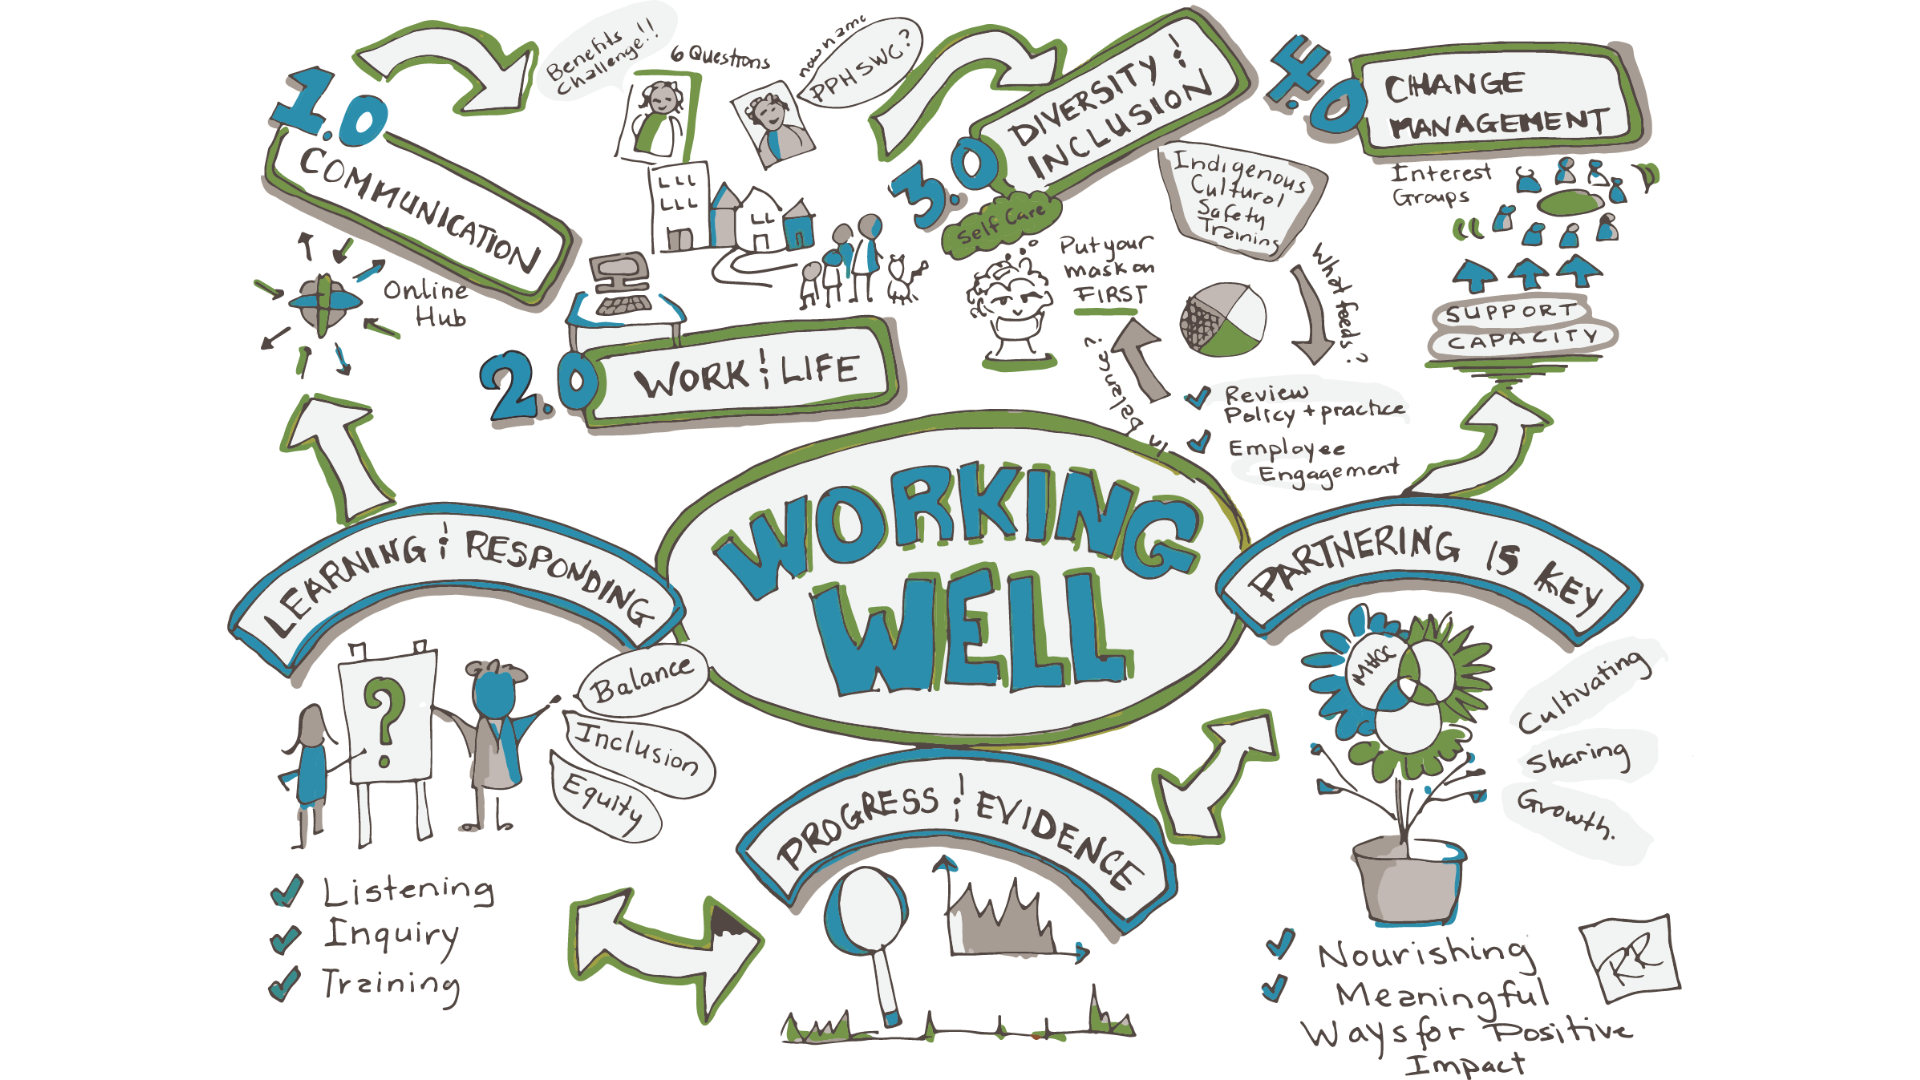 1.0
COMMUNICATION
Online
Hub
Benefits
Challenge!!
6 Questions
now name
PPHSWG?
2.0
WORK & LIFE
3.0
DIVERSITY &
INCLUSION
Self Care
Put your
mask on
FIRST
Indigenous
Cultural
Safety
Training
What feeds?
In balance?
Review
Policy + practice
Employee
Engagement
4.0
CHANGE
MANAGEMENT
Interest
Groups
SUPPORT
CAPACITY
WORKING
WELL
LEARNING & RESPONDING
?
Balance
Inclusion
Equity
Listening
Inquiry
Training
PROGRESS & EVIDENCE
PARTNERING IS KEY
MHCC
Cultivating
Sharing
Growth.
Nourishing
Meaningful
Ways for Positive
Impact
RR